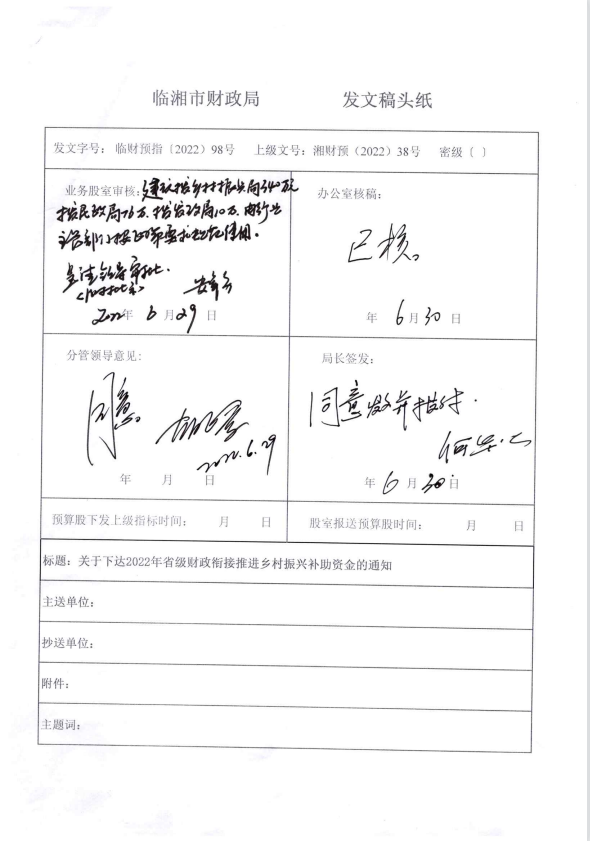 临湘市财政局 发文稿头纸
发文字号：临财预指〔2022〕98号 上级文号：湘财预〔2022〕38号 密级〔 〕
业务股室审核：建议拨乡村振兴局340万
拨民政局76万、拨发改局10万，由行业
主管部门按政策要求规范使用。
呈请领导审批。
2022年 6 月 29 日
办公室核稿：
已核。
年 6 月 30 日
分管领导意见：
同意。
2022.6.29
年 月 日
局长签发：
同意发并拨付.
年 6 月 30 日
预算股下发上级指标时间： 月 日 股室报送预算股时间： 月 日
标题：关于下达2022年省级财政衔接推进乡村振兴补助资金的通知
主送单位：
抄送单位：
附件：
主题词：